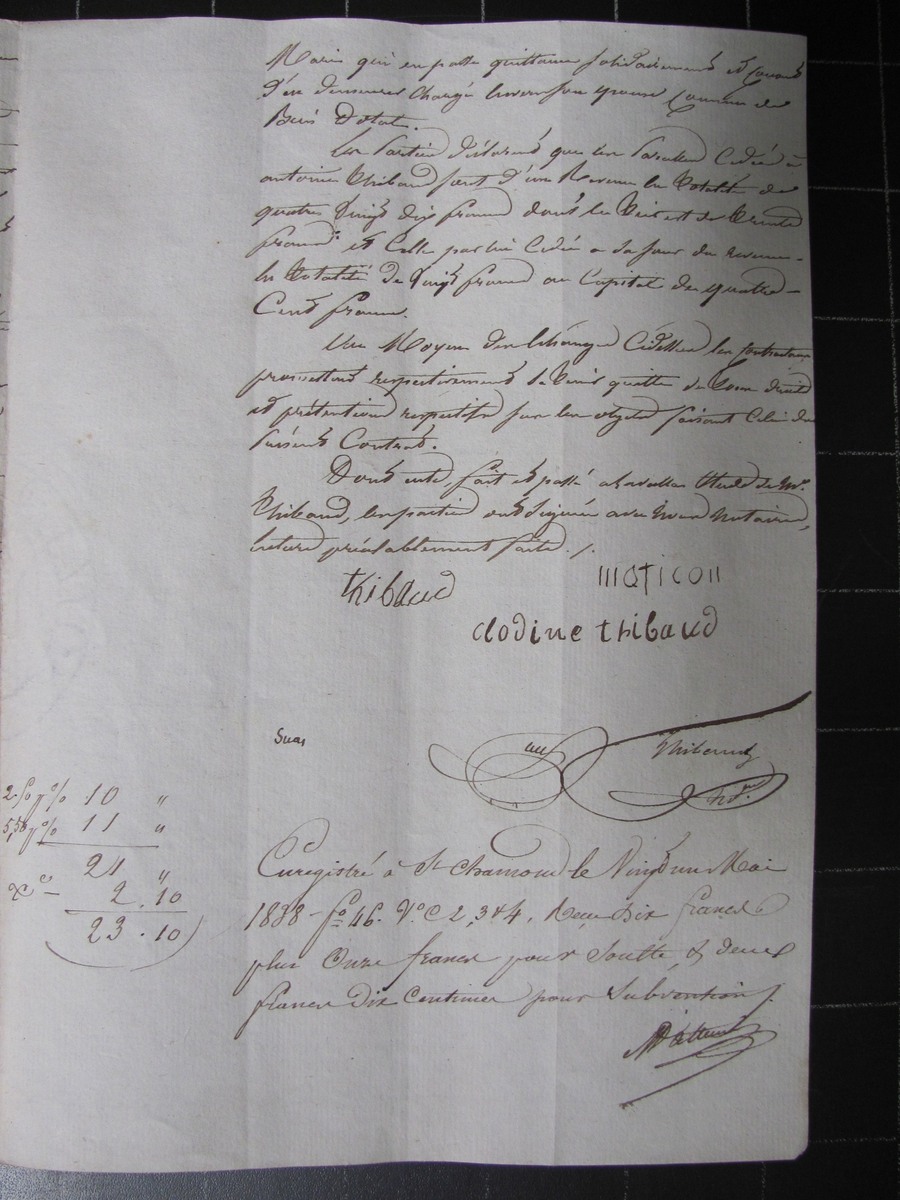 Mari qui en passe quittance solidairement et consent
d'en demeurer chargé envers son épouse comme de
Bien Dotal.
Les Parties déclarent que les Parcelles Cédées à
antoine Thibaud sont d'un Revenu en totalité de
quatre Vingt dix francs dont le est de trente
francs et Celle par lui Cédée a sa sœur du revenu
en totalité de Vingt francs au Capital de quatre
Cents francs.
Au Moyen de l'échange Cidessus les Contractans
promettent respectivement de tenir quitte de tous droits
et prétentions respectifs sur les objets faisant Celui du
Présent Contrat.
Dont acte, fait et passé a Lavalla Etude de Me.
Thibaud, les parties ont signées avec Nous Notaires,
lecture préalablement faite ./.
thibaud
moticon
clodine thibaud
Suas
Thibaud
2 f p % 10 "
5,50 p % 11 "
21 "
Xe 2.10
23.10
Enregistré à St Chamond le Vingt un Mai
1838 - fo 46. Vo C 2, 3 & 4. Reçu Dix francs
plus Onze francs pour Soulte, & deux
francs Dix Centimes pour Subvention ./.